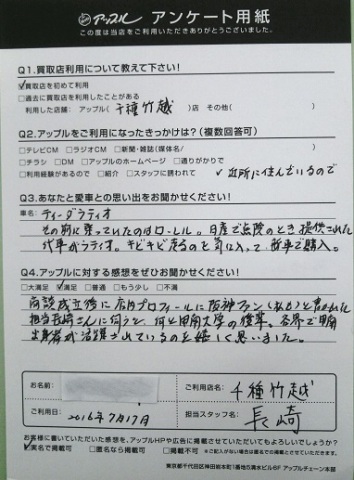 アップル アンケート用紙
この度は当店をご利用いただきありがとうございました。
Q1.買取店利用について教えて下さい!
☑買取店を初めて利用
□過去に買取店を利用したことがある
利用した店舗:アップル( 千種竹越 )店 その他( )
Q2.アップルをご利用になったきっかけは?(複数回答可)
□テレビCM □ラジオCM □新聞・雑誌(媒体名/ )
□チラシ □DM □アップルのホームページ □通りがかりで
□利用経験があるので □紹介 □スタッフに誘われて ✓近所に住んでいるので
Q3.あなたと愛車との思い出をお聞かせください!
車名: ティーダラティオ
その前に乗っていたのはローレル。日産で点検のとき提供された
代車がラティオ。キビキビ走るのを気に入って新車で購入。
Q4.アップルに対する感想をぜひお聞かせください!
□大満足 ☑満足 □普通 □もう少し □不満
商談成立後に店内プロフィールに阪神ファン(私も)と書かれた
担当長崎さんに伺うと、何と甲南大学の後輩。各界で甲南
出身者が活躍されているのを嬉しく思いました。
お名前:
ご利用店名: 千種竹越
ご利用日: 2016年7月17日
担当スタッフ名: 長崎
お客様に書いていただいた感想を、アップルHPや広告に掲載させていただいてもよろしいでしょうか?
☑実名で掲載可 □匿名なら掲載可 □掲載不可 ※ご記入がない場合は匿名での掲載とさせていただきます。
東京都千代田区神田岩本町1番地5清水ビル6F アップルチェーン本部